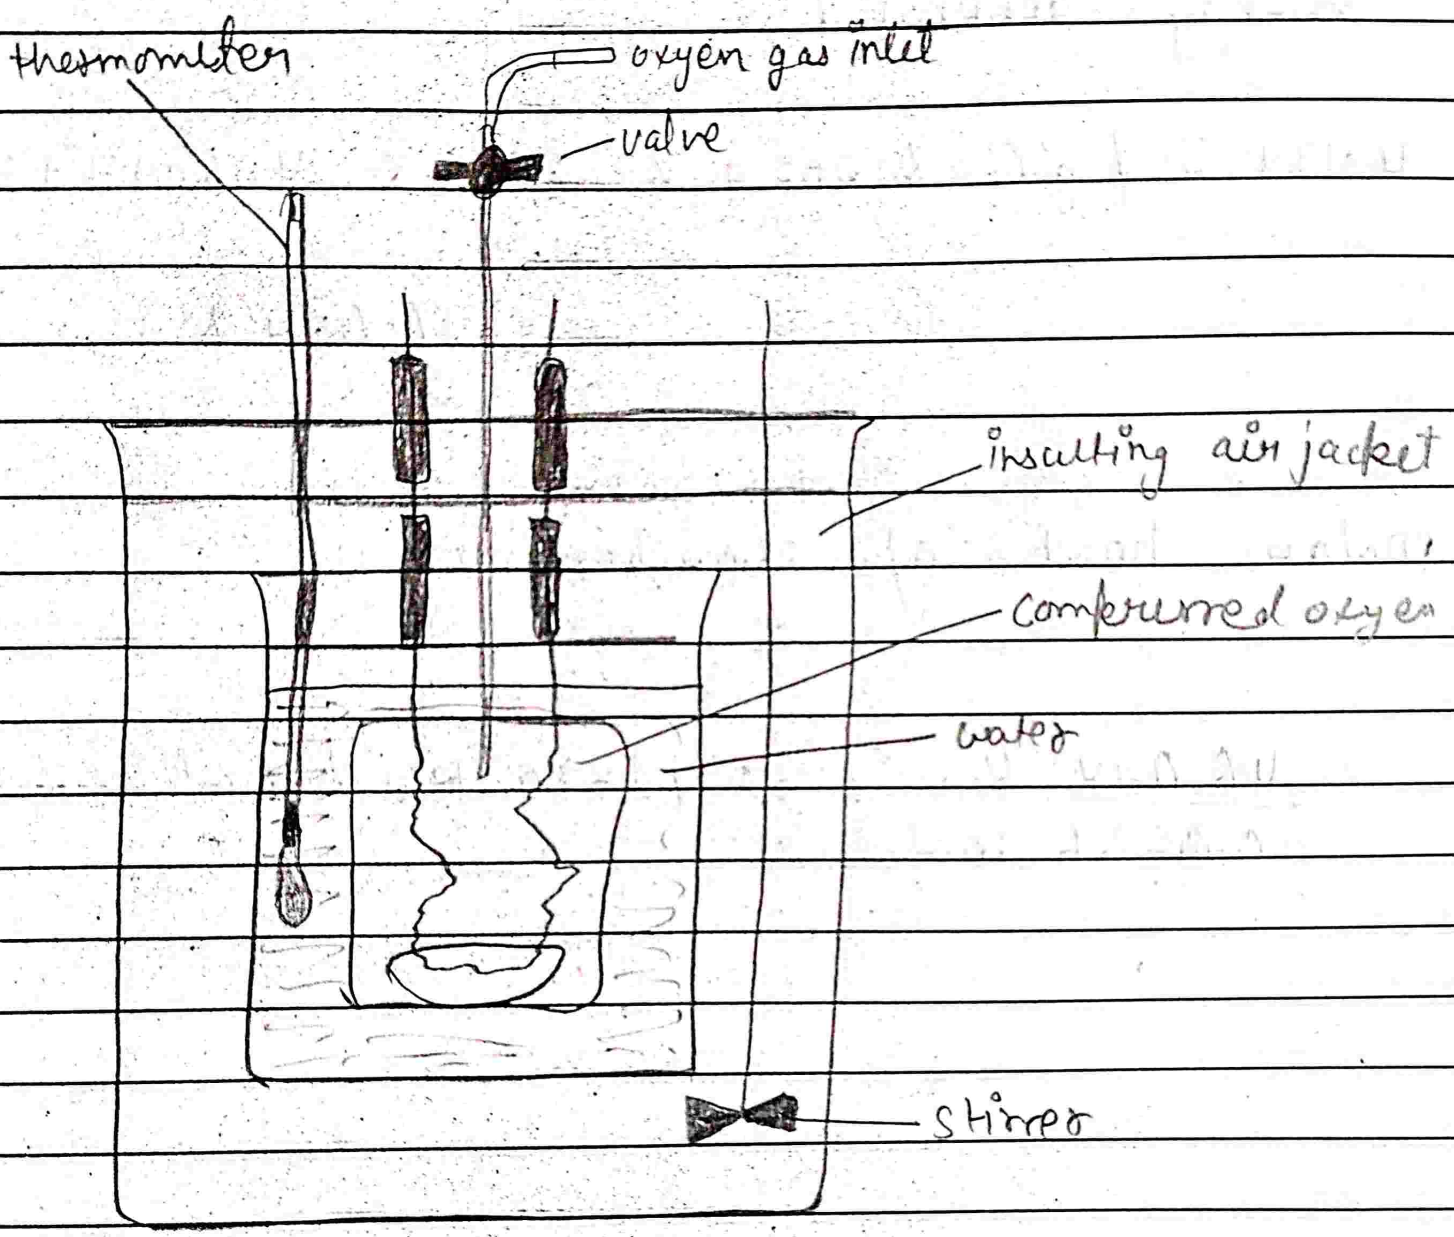 thermometer
oxyen gas inlet
valve
insulting air jacket
compressed oxyen
water
stirrer